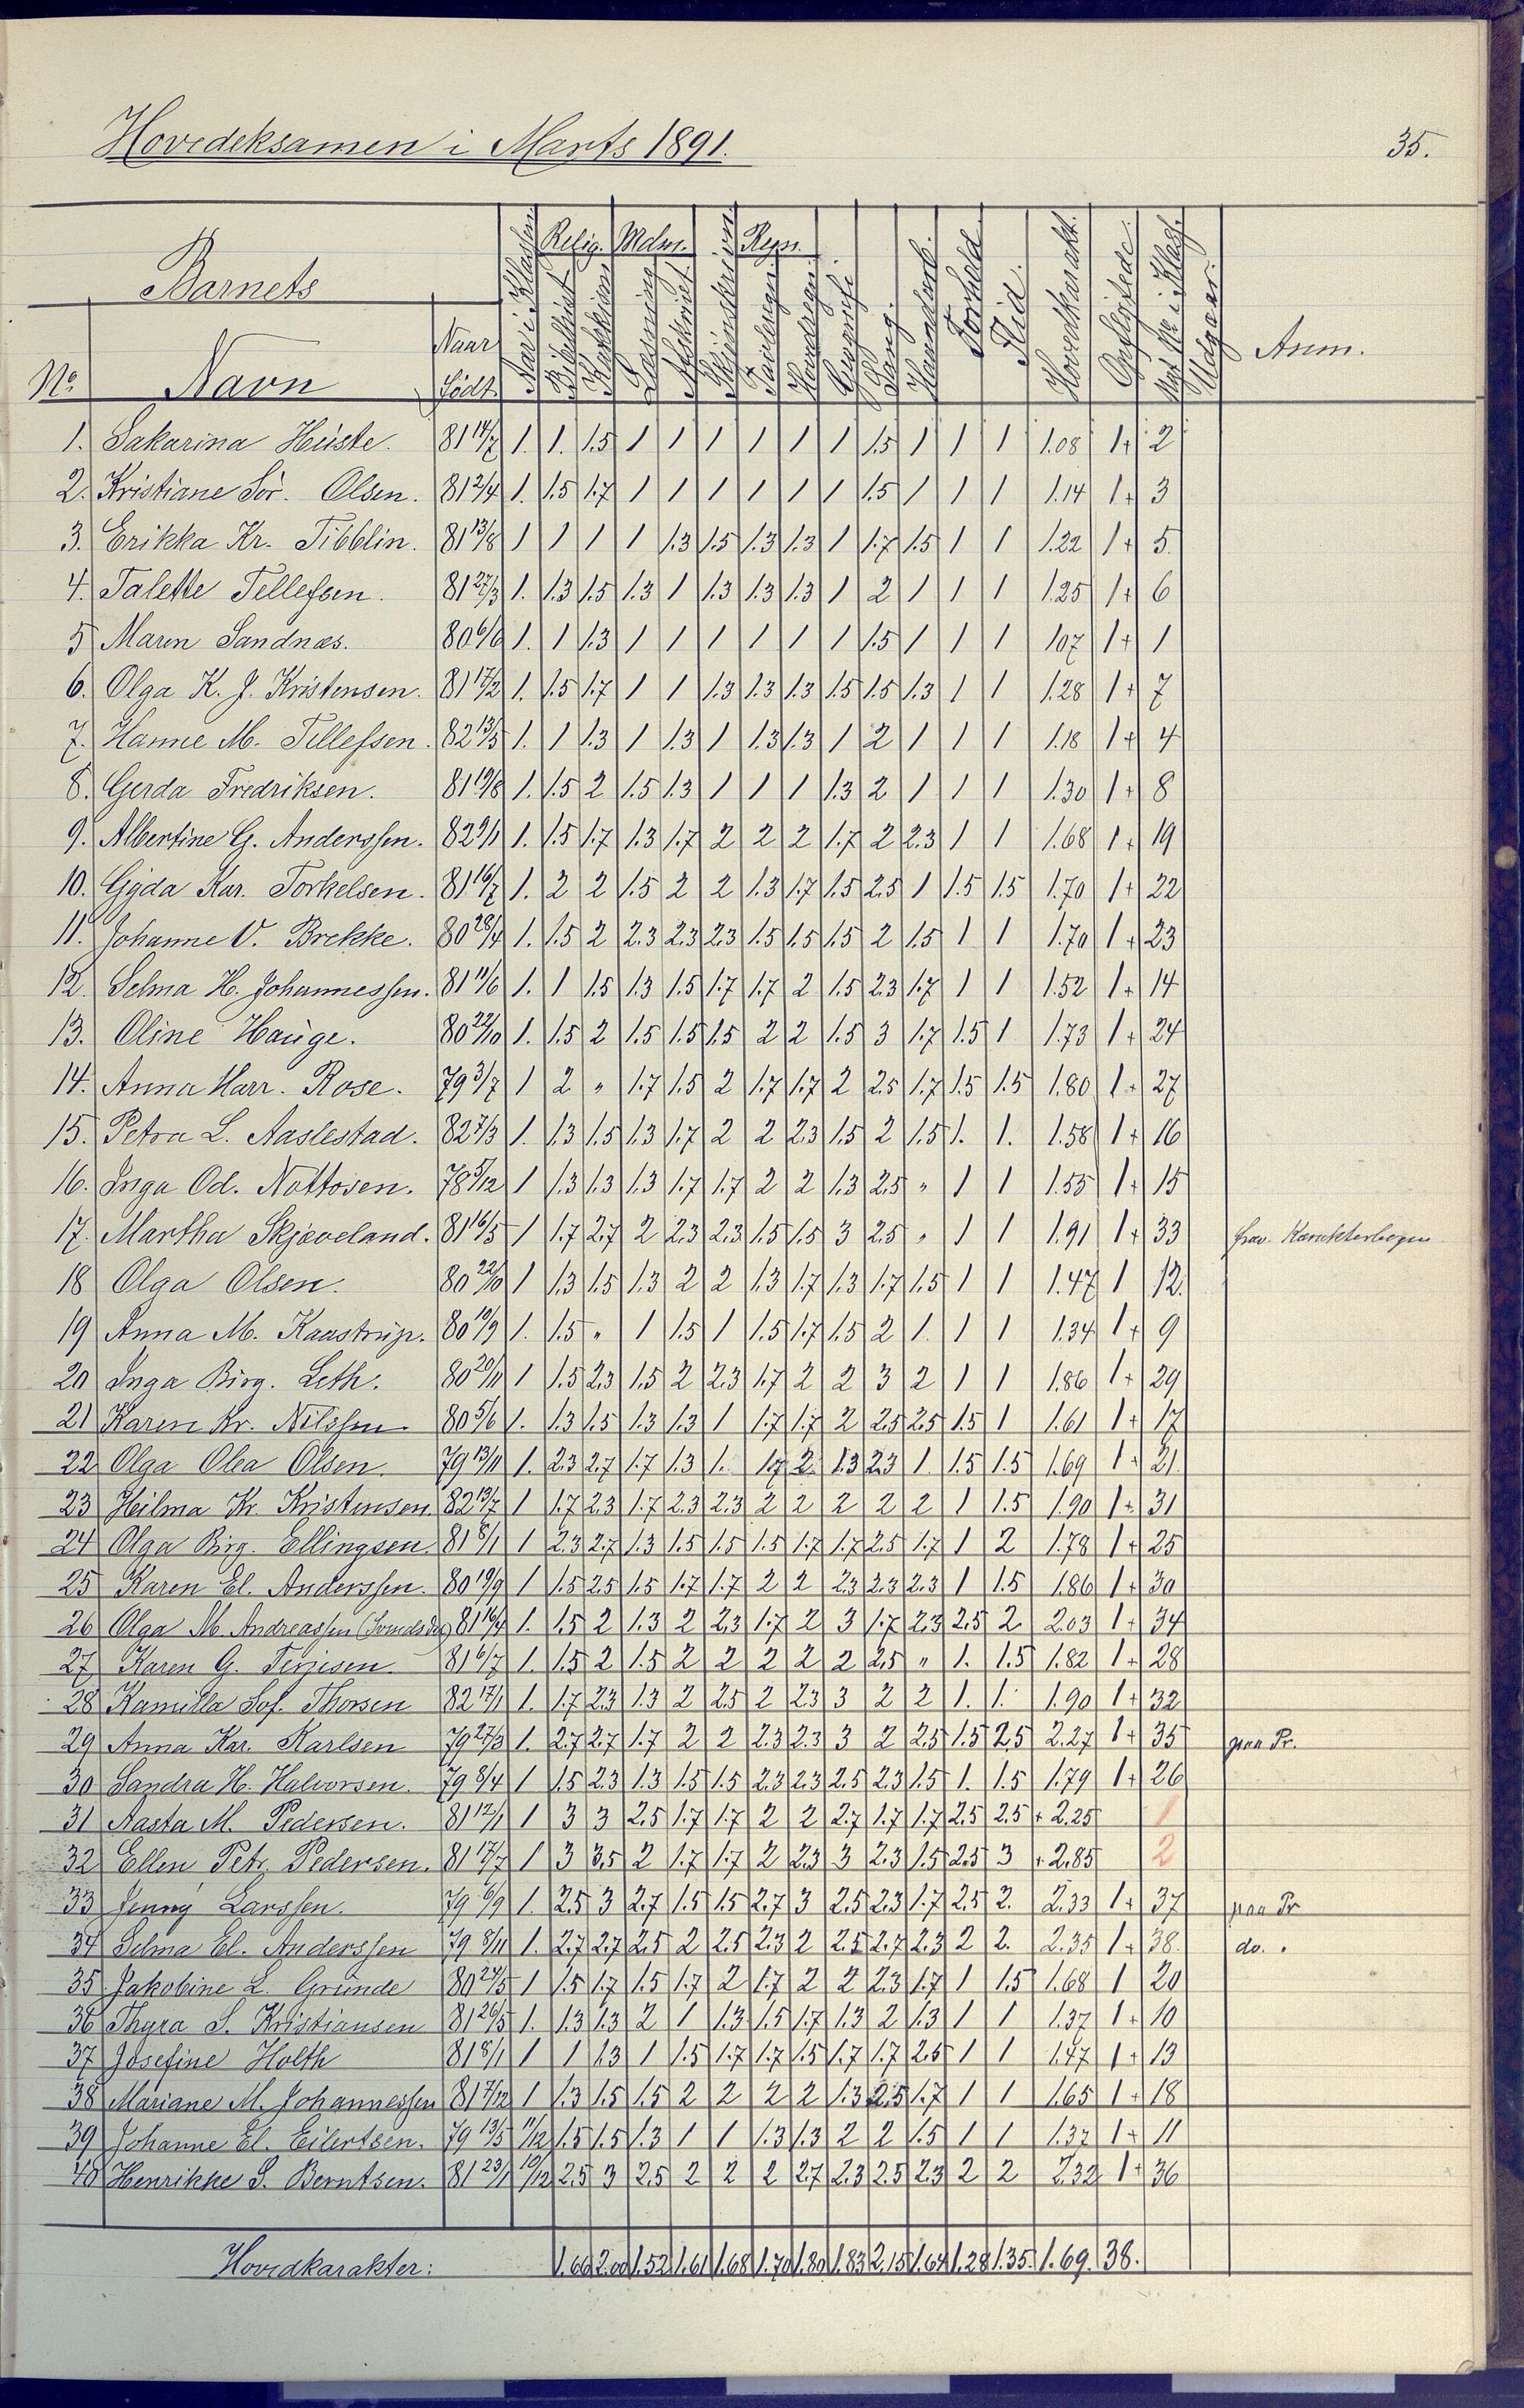 Hovedeksamen i Marts 1891.
35.
Barnets
Relig. Mdm. Regn.
No. Navn Naar Født. Aar i Klassen. Bibelhist. Katekism. Læsning Afskrivt. Skjønskrivn. Tavleregn. Hovedregn. Geografi Sang. Haandarb. Forhold. Flid. Hovedkarakt. Opflyttede. Udgaar. Anm.
1. Sakarina Heiste. 81 14/7 1. 1. 1.5 1 1 1 1 1 1 1.5 1 1 1 1.08 1+ 2
2. Kristiane Sør. Olsen. 81 2/4 1. 1.5 1.7 1 1 1 1 1 1 1.5 1 1 1 1.14 1+ 3
3. Erikka Kr. Tibblin. 81 13/8 1 1 1 1 1.3 1.5 1.3 1.3 1 1.7 1.5 1 1 1.22 1+ 5.
4. Talette Tellefsen. 81 27/3 1. 1.3 1.5 1.3 1 1.3 1.3 1.3 1 2 1 1 1 1.25 1+ 6
5 Maren Sandnæs. 80 6/6 1. 1 1.3 1 1 1 1 1 1 1.5 1 1 1 107 1+ 1
6. Olga K. J. Kristensen. 81 17/2 1. 1.5 1.7 1 1 1.3 1.3 1.3 1.5 1.5 1.3 1 1 1.28 1+ 7
7. Hanne M. Tellefsen. 82 13/5 1. 1 1.3 1 1.3 1 1.3 1.3 1 2 1 1 1 1.18 1+ 4
8. Gerda Fredriksen. 81 19/8 1. 1.5 2 1.5 1.3 1 1 1 1.3 2 1 1 1 1.30 1+ 8
9. Albertine G. Anderssen. 82 9/1 1. 1.5 1.7 1.3 1.7 2 2 2 1.7 2 2.3 1 1 1.68 1+ 19
10. Gyda Kar. Torkelsen. 81 16/7 1. 2 2 1.5 2 2 1.3 1.7 1.5 2.5 1 1.5 1.5 1.70 1+ 22
11. Johanne V. Brekke. 80 28/4 1. 1.5 2 2.3 2.3 2.3 1.5 1.5 1.5 2 1.5 1 1 1.70 1+ 23
12. Selma H. Johannessen. 81 11/6 1. 1 1.5 1.3 1.5 1.7 1.7 2 1.5 2.3 1.7 1 1 1.52 1+ 14
13. Oline Hauge. 80 22/10 1. 1.5 2 1.5 1.5 1.5 2 2 1.5 3 1.7 1.5 1 1.73 1+ 24
14. Anna Harr. Rose. 79 3/7 1 2 " 1.7 1.5 2 1.7 1.7 2 2.5 1.7 1.5 1.5 1.80 1+ 27
15. Petra L. Aaslestad. 82 7/3 1. 1.3 1.5 1.3 1.7 2 2 2.3 1.5 2 1.5 1. 1. 1.58 1+ 16
16. Inga Od. Nottosen. 78 5/12 1 1.3 1.3 1.3 1.7 1.7 2 2 1.3 2.5 " 1 1 1.55 1+ 15
17. Martha Skjæveland. 81 16/5 1 1.7 2.7 2 2.3 2.3 1.5 1.5 3 2.5 " 1 1 1.91 1+ 33 Karakterbogen
18 Olga Olsen. 80 22/10 1 1.3 1.5 1.3 2 2 1.3 1.7 1.3 1.7 1.5 1 1 1.47 1 12.
19 Anna M. Kaastrup. 80 10/9 1. 1.5 " 1 1.5 1 1.5 1.7 1.5 2 1. 1 1 1.34 1+ 9
20 Inga Birg. Leth. 80 20/11 1 1.5 2.3 1.5 2 2.3 1.7 2 2 3 2 1 1 1.86 1+ 29
21 Karen Kr. Nilssen 80 5/6 1. 1.3 1.5 1.3 1.3 1 1.7 1.7 2 2.5 2.5 1.5 1 1.61 1+ 17
22 Olga Olea Olsen. 79 13/11 1. 2.3 2.7 1.7 1.3 1. 1.7 2. 1.3 2.3 1 1.5 1.5 1.69 1+ 21.
23 Heilma Kr. Kristensen. 82 13/7 1 1.7 2.3 1.7 2.3 2.3 2 2 2 2 2 1 1.5 1.90 1+ 31
24 Olga Birg. Ellingsen. 81 8/1 1 2.3 2.7 1.3 1.5 1.5 1.5 1.7 1.7 2.5 1.7 1 2 1.78 1+ 25
25 Karen El. Anderssen. 80 19/9 1 1.5 2.5 1.5 1.7 1.7 2 2 2.3 2.3 2.3 1 1.5 1.86 1+ 30
26 Olga M. Andreassen 81 16/4 1. 1.5 2 1.3 2 2.3 1.7 2 3 1.7 2.3 2.5 2. 2.03 1+ 34
27 Karen G. Terjesen. 81 6/7 1. 1.5 2 1.5 2 2 2 2 2 2.5 " 1. 1.5 1.82 1+ 28
28 Kamilla Sof. Thorsen 82 17/1 1. 1.7 2.3 1.3 2 2.5 2 2.3 3 2 2 1. 1. 1.90 1+ 32
29 Anna Kar. Karlsen 79 27/3 1. 2.7 2.7 1.7 2 2 2.3 2.3 3 2 2.5 1.5 2.5 2.27 1+ 35 paa Pr.
30 Sandra H. Halvorsen. 79 8/4 1 1.5 2.3 1.3 1.5 1.5 2.3 2.3 2.5 2.3 1.5 1. 1.5 1.79 1+ 26
31 Aasta M. Pedersen. 81 12/1 1 3 3 2.5 1.7 1.7 2 2 2.7 1.7 1.7 2.5 2.5 + 2.25 1
32 Ellen Petr. Pedersen. 81 17/7 1 3 3.5 2 1.7 1.7 2 2.3 3 2.3 1.5 2.5 3 + 2.85 2
33 Jenny Larssen. 79 6/9 1. 2.5 3 2.7 1.5 1.5 2.7 3 2.5 2.3 1.7 2.5 2. 2.33 1+ 37 paa Pr
34 Selma El. Anderssen 79 8/11 1. 2.7 2.7 2.5 2 2.5 2.3 2 2.5 2.7 2.3 2 2. 2.35 1+ 38. do. "
35 Jakobine L. Grunde 80 24/5 1 1.5 1.7 1.5 1.7 2 1.7 2 2 2.3 1.7 1 1.5 1.68 1 20
36 Thyra S. Kristiansen 81 26/5 1. 1.3 1.3 2 1 1.3 1.5 1.7 1.3 2 1.3 1 1 1.37 1+ 10
37 Josefine Holth 81 8/1 1 1 1.3 1 1.5 1.7 1.7 1.5 1.7 1.7 2.5 1 1 1.47 1+ 13
38 Mariane M. Johannessen 81 7/12 1 1.3 1.5 1.5 2 2 2 2 1.3 2.5 1.7 1 1 1.65 1+ 18
39 Johanne El. Eilertsen. 79 13/5 11/12 1.5 1.5 1.3 1 1 1.3 1.3 2 2 1.5 1 1 1.37 1+ 11
40 Henrikke S. Berntsen. 81 23/1 10/12 2.5 3 2.5 2 2 2 2.7 2.3 2.5 2.3 2 2 2.32 1+ 36
Hovedkarakter: 1.66 2.00 1.52 1.61 1.68 1.70 1.80 1.83 2.15 1.64 1.28 1.35. 1.69. 38.